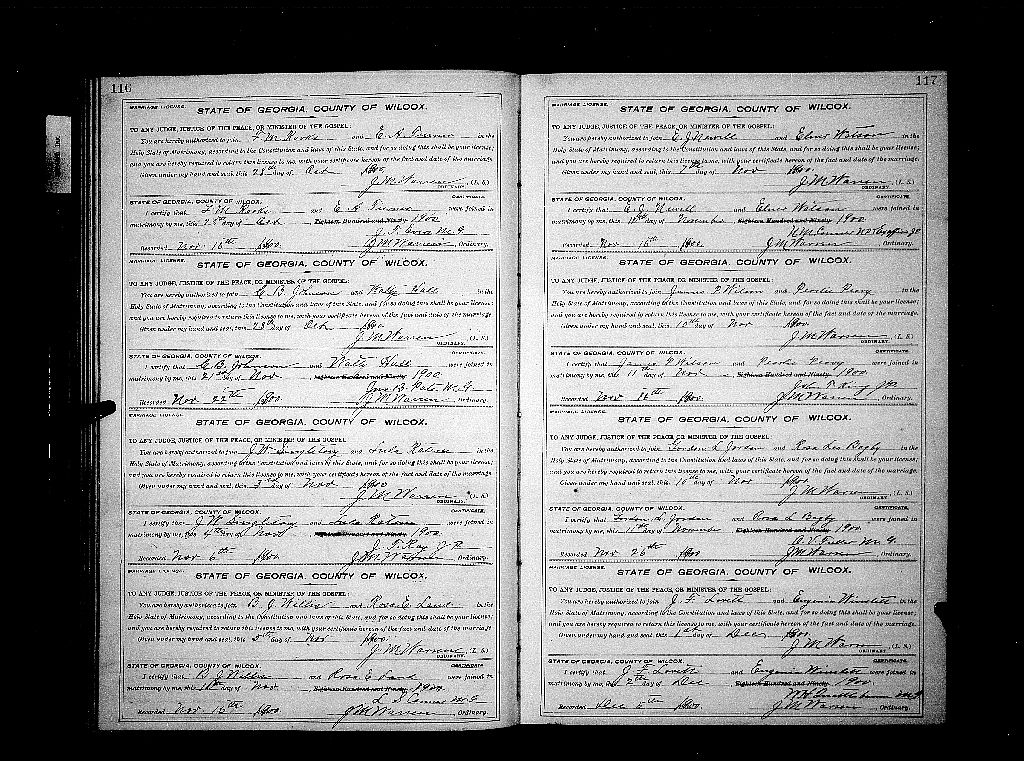 116
MARRIAGE LICENSE.
STATE OF GEORGIA, COUNTY OF WILCOX.
TO ANY JUDGE, JUSTICE OF THE PEACE, OR MINISTER OF THE GOSPEL:
You are hereby authorized to join and E. A. in the
Holy State of Matrimony, according to the Constitution and laws of this State, and for so doing this shall be your license;
and you are hereby required to return this license to me, with your certificate hereon of the fact and date of the marriage.
Given under my hand and seal, this day of Oct 1900.
J. M. Warren (L. S.)
ORDINARY.
STATE OF GEORGIA, COUNTY OF WILCOX. CERTIFICATE.
I certify that and E. A. were joined in
matrimony by me, this day of Oct Eighteen Hundred and Ninety 1900
M. G.
Recorded Nov 16th 1900. J. M. Warren Ordinary.
MARRIAGE LICENSE.
STATE OF GEORGIA, COUNTY OF WILCOX.
TO ANY JUDGE, JUSTICE OF THE PEACE, OR MINISTER OF THE GOSPEL:
You are hereby authorized to join C. B. Johnson and Hall in the
Holy State of Matrimony, according to the Constitution and laws of this State, and for so doing this shall be your license;
and you are hereby required to return this license to me, with your certificate hereon of the fact and date of the marriage.
Given under my hand and seal, this 23th day of Oct 1900.
J. M. Warren (L. S.)
ORDINARY.
STATE OF GEORGIA, COUNTY OF WILCOX. CERTIFICATE.
I certify that C. B. Johnson and Hall were joined in
matrimony by me, this 21st day of Nov Eighteen Hundred and Ninety 1900
M. G.
Recorded Nov 22nd 1900. J. M. Warren Ordinary.
MARRIAGE LICENSE.
STATE OF GEORGIA, COUNTY OF WILCOX.
TO ANY JUDGE, JUSTICE OF THE PEACE, OR MINISTER OF THE GOSPEL:
You are hereby authorized to join J. W. and Lula in the
Holy State of Matrimony, according to the Constitution and laws of this State, and for so doing this shall be your license;
and you are hereby required to return this license to me, with your certificate hereon of the fact and date of the marriage.
Given under my hand and seal, this 3rd day of Nov 1900.
J. M. Warren (L. S.)
ORDINARY.
STATE OF GEORGIA, COUNTY OF WILCOX. CERTIFICATE.
I certify that J. W. and Lula were joined in
matrimony by me, this 4th day of Nov Eighteen Hundred and Ninety 1900
J. T. Ray J. P.
Recorded Nov 6th 1900. J. M. Warren Ordinary.
MARRIAGE LICENSE.
STATE OF GEORGIA, COUNTY OF WILCOX.
TO ANY JUDGE, JUSTICE OF THE PEACE, OR MINISTER OF THE GOSPEL:
You are hereby authorized to join B. J. Willis and Rosa E. in the
Holy State of Matrimony, according to the Constitution and laws of this State, and for so doing this shall be your license;
and you are hereby required to return this license to me, with your certificate hereon of the fact and date of the marriage.
Given under my hand and seal, this day of Nov 1900.
J. M. Warren (L. S.)
ORDINARY.
STATE OF GEORGIA, COUNTY OF WILCOX. CERTIFICATE.
I certify that B. J. Willis and Rosa E. were joined in
matrimony by me, this day of Nov Eighteen Hundred and Ninety 1900
M. G.
Recorded Nov 1900. J. M. Warren Ordinary.
117
MARRIAGE LICENSE.
STATE OF GEORGIA, COUNTY OF WILCOX.
TO ANY JUDGE, JUSTICE OF THE PEACE, OR MINISTER OF THE GOSPEL:
You are hereby authorized to join E. J. and Elmer Wilson in the
Holy State of Matrimony, according to the Constitution and laws of this State, and for so doing this shall be your license;
and you are hereby required to return this license to me, with your certificate hereon of the fact and date of the marriage.
Given under my hand and seal, this day of Nov 1900.
J. M. Warren (L. S.)
ORDINARY.
STATE OF GEORGIA, COUNTY OF WILCOX. CERTIFICATE.
I certify that E. J. and Elmer Wilson were joined in
matrimony by me, this day of November Eighteen Hundred and Ninety 1900
Recorded Nov 16th 1900. J. M. Warren Ordinary.
MARRIAGE LICENSE.
STATE OF GEORGIA, COUNTY OF WILCOX.
TO ANY JUDGE, JUSTICE OF THE PEACE, OR MINISTER OF THE GOSPEL:
You are hereby authorized to join James P. Wilson and in the
Holy State of Matrimony, according to the Constitution and laws of this State, and for so doing this shall be your license;
and you are hereby required to return this license to me, with your certificate hereon of the fact and date of the marriage.
Given under my hand and seal, this 10th day of Nov 1900.
J. M. Warren (L. S.)
ORDINARY.
STATE OF GEORGIA, COUNTY OF WILCOX. CERTIFICATE.
I certify that James P. Wilson and were joined in
matrimony by me, this 11th day of Nov Eighteen Hundred and Ninety 1900
John T. King
Recorded Nov 16th 1900. J. M. Warren Ordinary.
MARRIAGE LICENSE.
STATE OF GEORGIA, COUNTY OF WILCOX.
TO ANY JUDGE, JUSTICE OF THE PEACE, OR MINISTER OF THE GOSPEL:
You are hereby authorized to join Gordon L. Jordan and Rosa Lee Bagby in the
Holy State of Matrimony, according to the Constitution and laws of this State, and for so doing this shall be your license;
and you are hereby required to return this license to me, with your certificate hereon of the fact and date of the marriage.
Given under my hand and seal, this 10th day of Nov 1900.
J. M. Warren (L. S.)
ORDINARY.
STATE OF GEORGIA, COUNTY OF WILCOX. CERTIFICATE.
I certify that Gordon L. Jordan and Rosa L Bagby were joined in
matrimony by me, this 11th day of November Eighteen Hundred and Ninety 1900
M. G.
Recorded Nov 26th 1900. J. M. Warren Ordinary.
MARRIAGE LICENSE.
STATE OF GEORGIA, COUNTY OF WILCOX.
TO ANY JUDGE, JUSTICE OF THE PEACE, OR MINISTER OF THE GOSPEL:
You are hereby authorized to join and Eugenia in the
Holy State of Matrimony, according to the Constitution and laws of this State, and for so doing this shall be your license;
and you are hereby required to return this license to me, with your certificate hereon of the fact and date of the marriage.
Given under my hand and seal, this 1st day of Dec 1900.
J. M. Warren (L. S.)
ORDINARY.
STATE OF GEORGIA, COUNTY OF WILCOX. CERTIFICATE.
I certify that and Eugenia were joined in
matrimony by me, this 2nd day of Dec Eighteen Hundred and Ninety 1900
Recorded Dec 1900. J. M. Warren Ordinary.